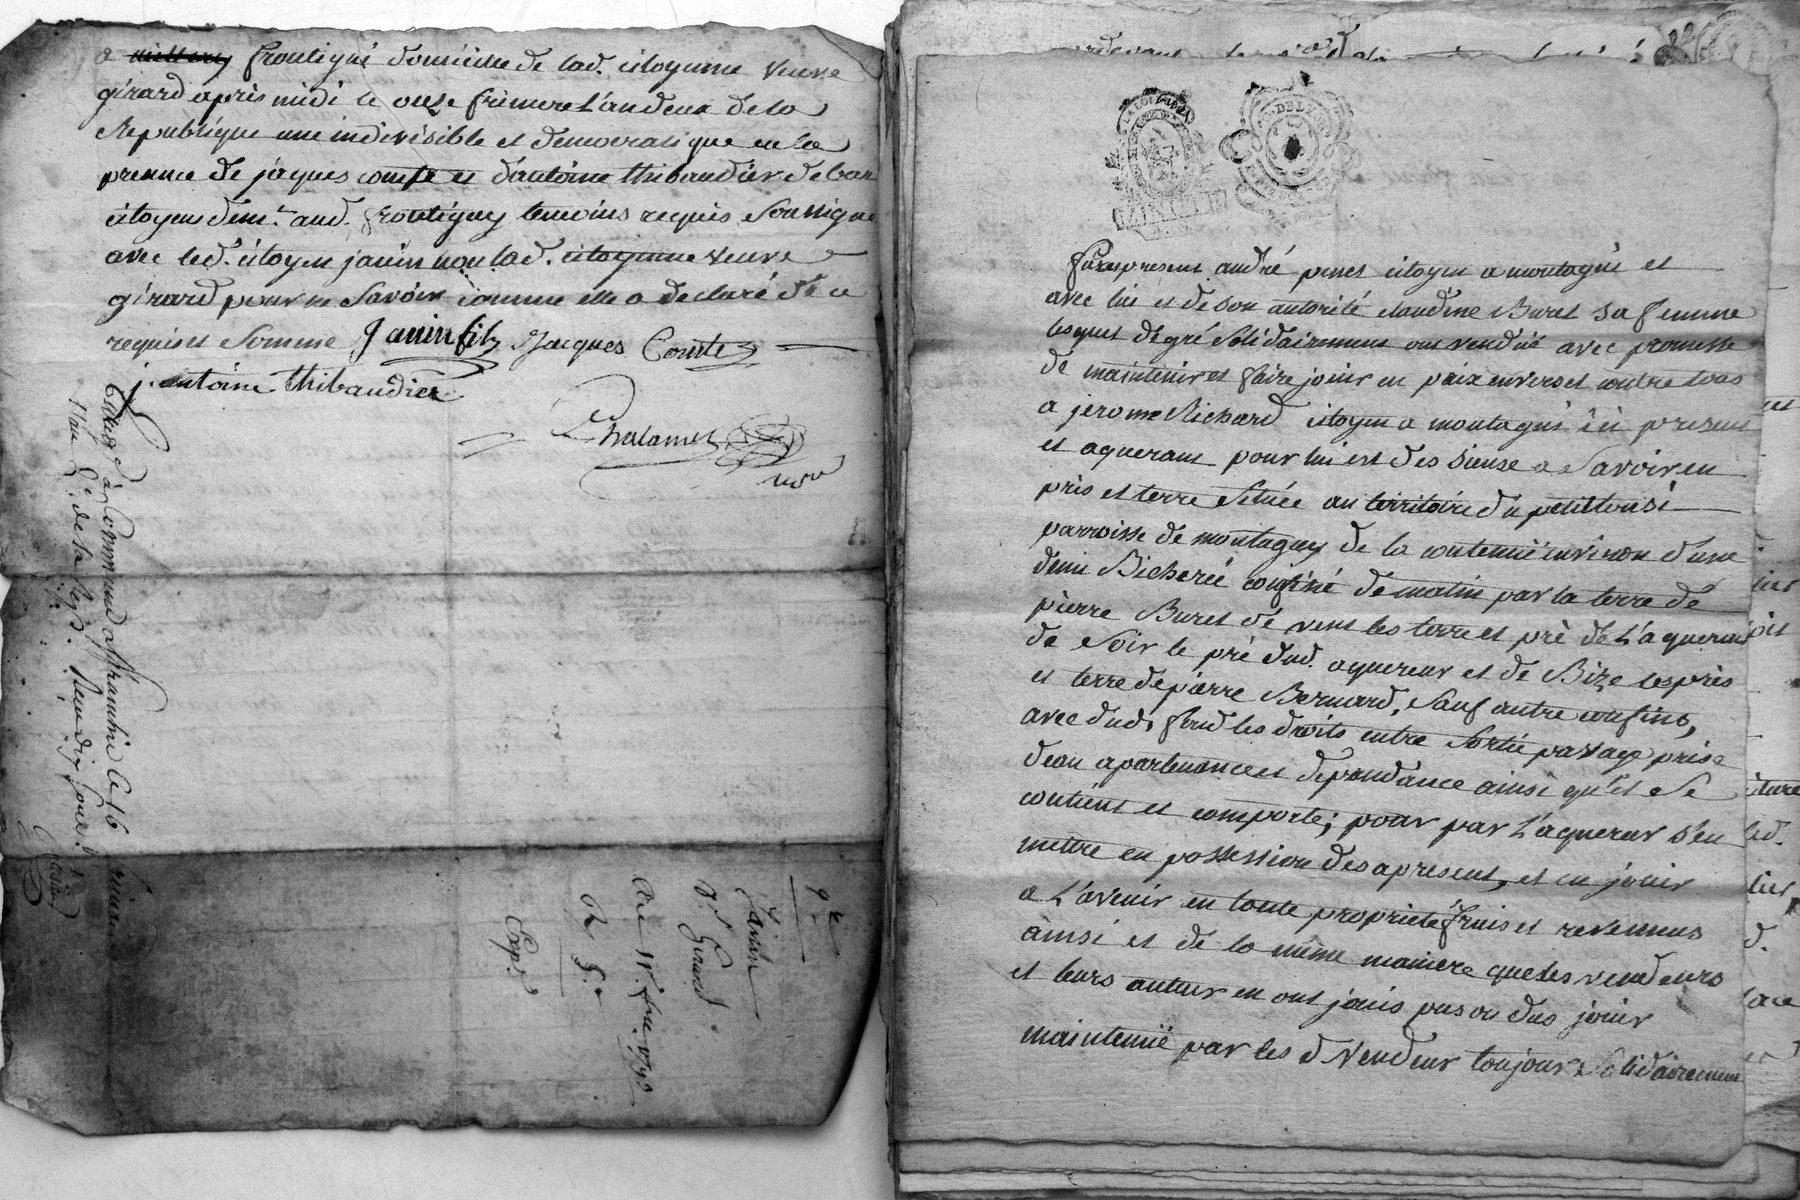 a frontigni domicille de lad. citoyenne veuve
girard apres midi le onze frimere l'an deux de la
Republique une indivisible et democratique en la
presence de jaques comte et d'antoine thibaudier de
citoyens dem.t aud. frontigny temoins requis soussigné
avec led. citoyen janin non lad. citoyenne veuve
girard pour ne savoir comme elle a declaré de ce
requise et Sommé Janin fils Jacques Comte
j. antoine thibaudier
Chalamel
nore
à Commune affranchie le 16 frimaire
l'an 2e de la Rep.
q.ce
Janin
v.e Girard
du 11e fre 1793
2 s.
Exp.
LA LOI LE ROI
MINUTE
Furent present andré pones citoyen a montagni et
avec lui et de son autorité claudine Buret sa femme
lesquels de gré Solidairement ont vendüe avec promesse
de maintenir et faire jouir en paix envers et contre tous
a jerome Richard citoyen a montagni ici present
et aquerant pour lui et des siens a Savoir en
prés et terre Située au territoire du petit
parroisse de montagny de la contenüe environ d'une
demi Bicherée confiné de matin par la terre de
pierre Buret de vent les terre et pré de L'aquereur
de Soir le pré dud. aquereur et de Bize les prés
et terre de pierre Bernard, Sauf autre confins,
avec dud. fond les droits entre Sortie passage prise
deau apartenance et dependance ainsi qu'il Se
contient et comporte; pour par L'aquereur s'en
mettre en possession des apresent, et en jouir
a L'avenir en toute propriete fruis et revennus
ainsi et de la même maniere que les vendeurs
et leurs auteur en ont jouis pus ou dus jouir
maintenüe par les d vendeur toujour Solidairement